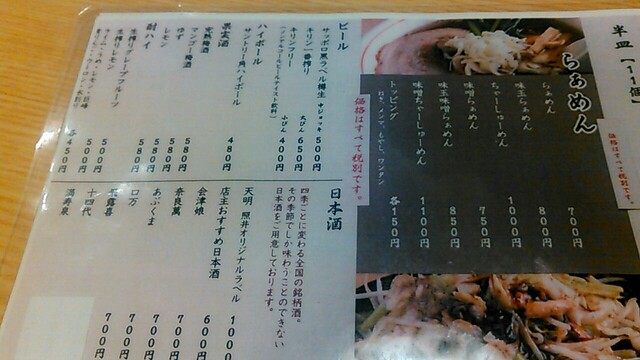 半皿
らぁめん
らぁめん 700円
味玉らぁめん 800円
ちゃーしゅーめん 1000円
味噌らぁめん 750円
味玉味噌らぁめん 850円
味噌ちゃーしゅーめん 1100円
トッピング 各150円
ねぎ、メンマ、もやし、ワンタン
価格はすべて税別です。
価格はすべて税別です。
ビール
サッポロ黒ラベル樽生 中ジョッキ 500円
キリン一番搾り 大びん 650円
キリンフリー 小びん 400円
ハイボール
サントリー角ハイボール 480円
果実酒
梅酒
マンゴー梅酒
ゆず 580円
レモン 580円
酎ハイ
生搾りレモン 580円
生搾りグレープフルーツ 580円
500円
各450円
日本酒
四季ごとに変わる全国の銘柄酒。
その季節でしか味わうことのできない
日本酒をご用意しております。
天明 照井オリジナルラベル 1000
店主おすすめ日本酒 600円
会津娘 700円
奈良萬 700円
あぶくま 700円
ロ万 700円
飛露喜 700円
十四代
満寿泉